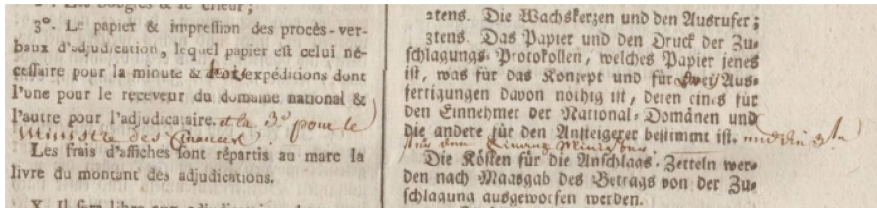 2°. Les bougies & le crieur;
3°. Le papier & impression des procès-ver-
baux d'adjudication, lequel papier est celui né-
cessaire pour la minute & trois expéditions dont
l'une pour le receveur du domaine national &
l'autre pour l'adjudicataire. et la 3e pour le
Ministre des Finances.
Les frais d'affiches sont répartis au marc la
livre du montant des adjudications.
X. Il sera libre aux
2tens. Die Wachskerzen und den Ausrufer;
3tens. Das Papier und den Druck der Zu-
schlagungs-Protokollen, welches Papier jenes
ist, was für das Konzept und für zwei Aus-
fertigungen davon nöthig ist, deren eines für
den Einnehmer der National-Domänen und
die andere für den Ansteigerer bestimmt ist. und die 3te
für den Finanz Minister.
Die Kösten für die Anschlags-Zetteln wer-
den nach Maasgab des Betrags von der Zu-
schlagung ausgeworfen werden.